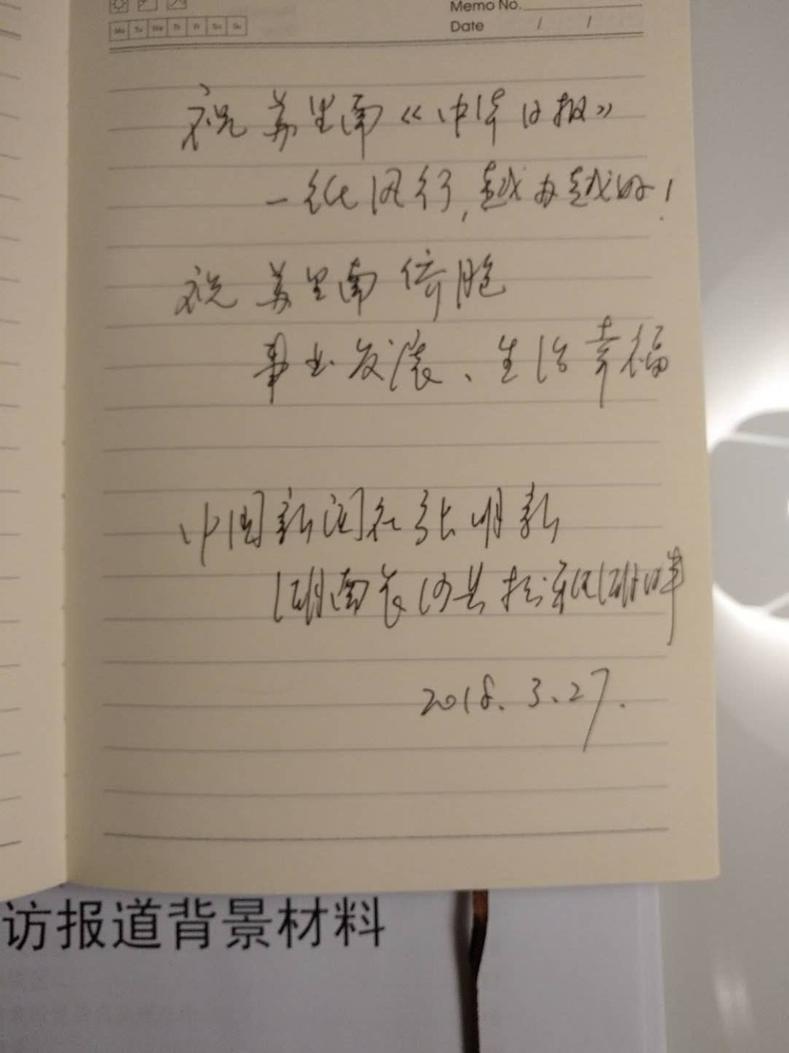 Memo No.
Mo Tu We Th Fr Sa Su
Date / /
祝苏里南《中华日报》
一纸风行,越办越好!
祝苏里南侨胞
事业发展、生活幸福
中国新闻社张明新
湖南长沙县松雅湖畔
2018.3.27.
访报道背景材料